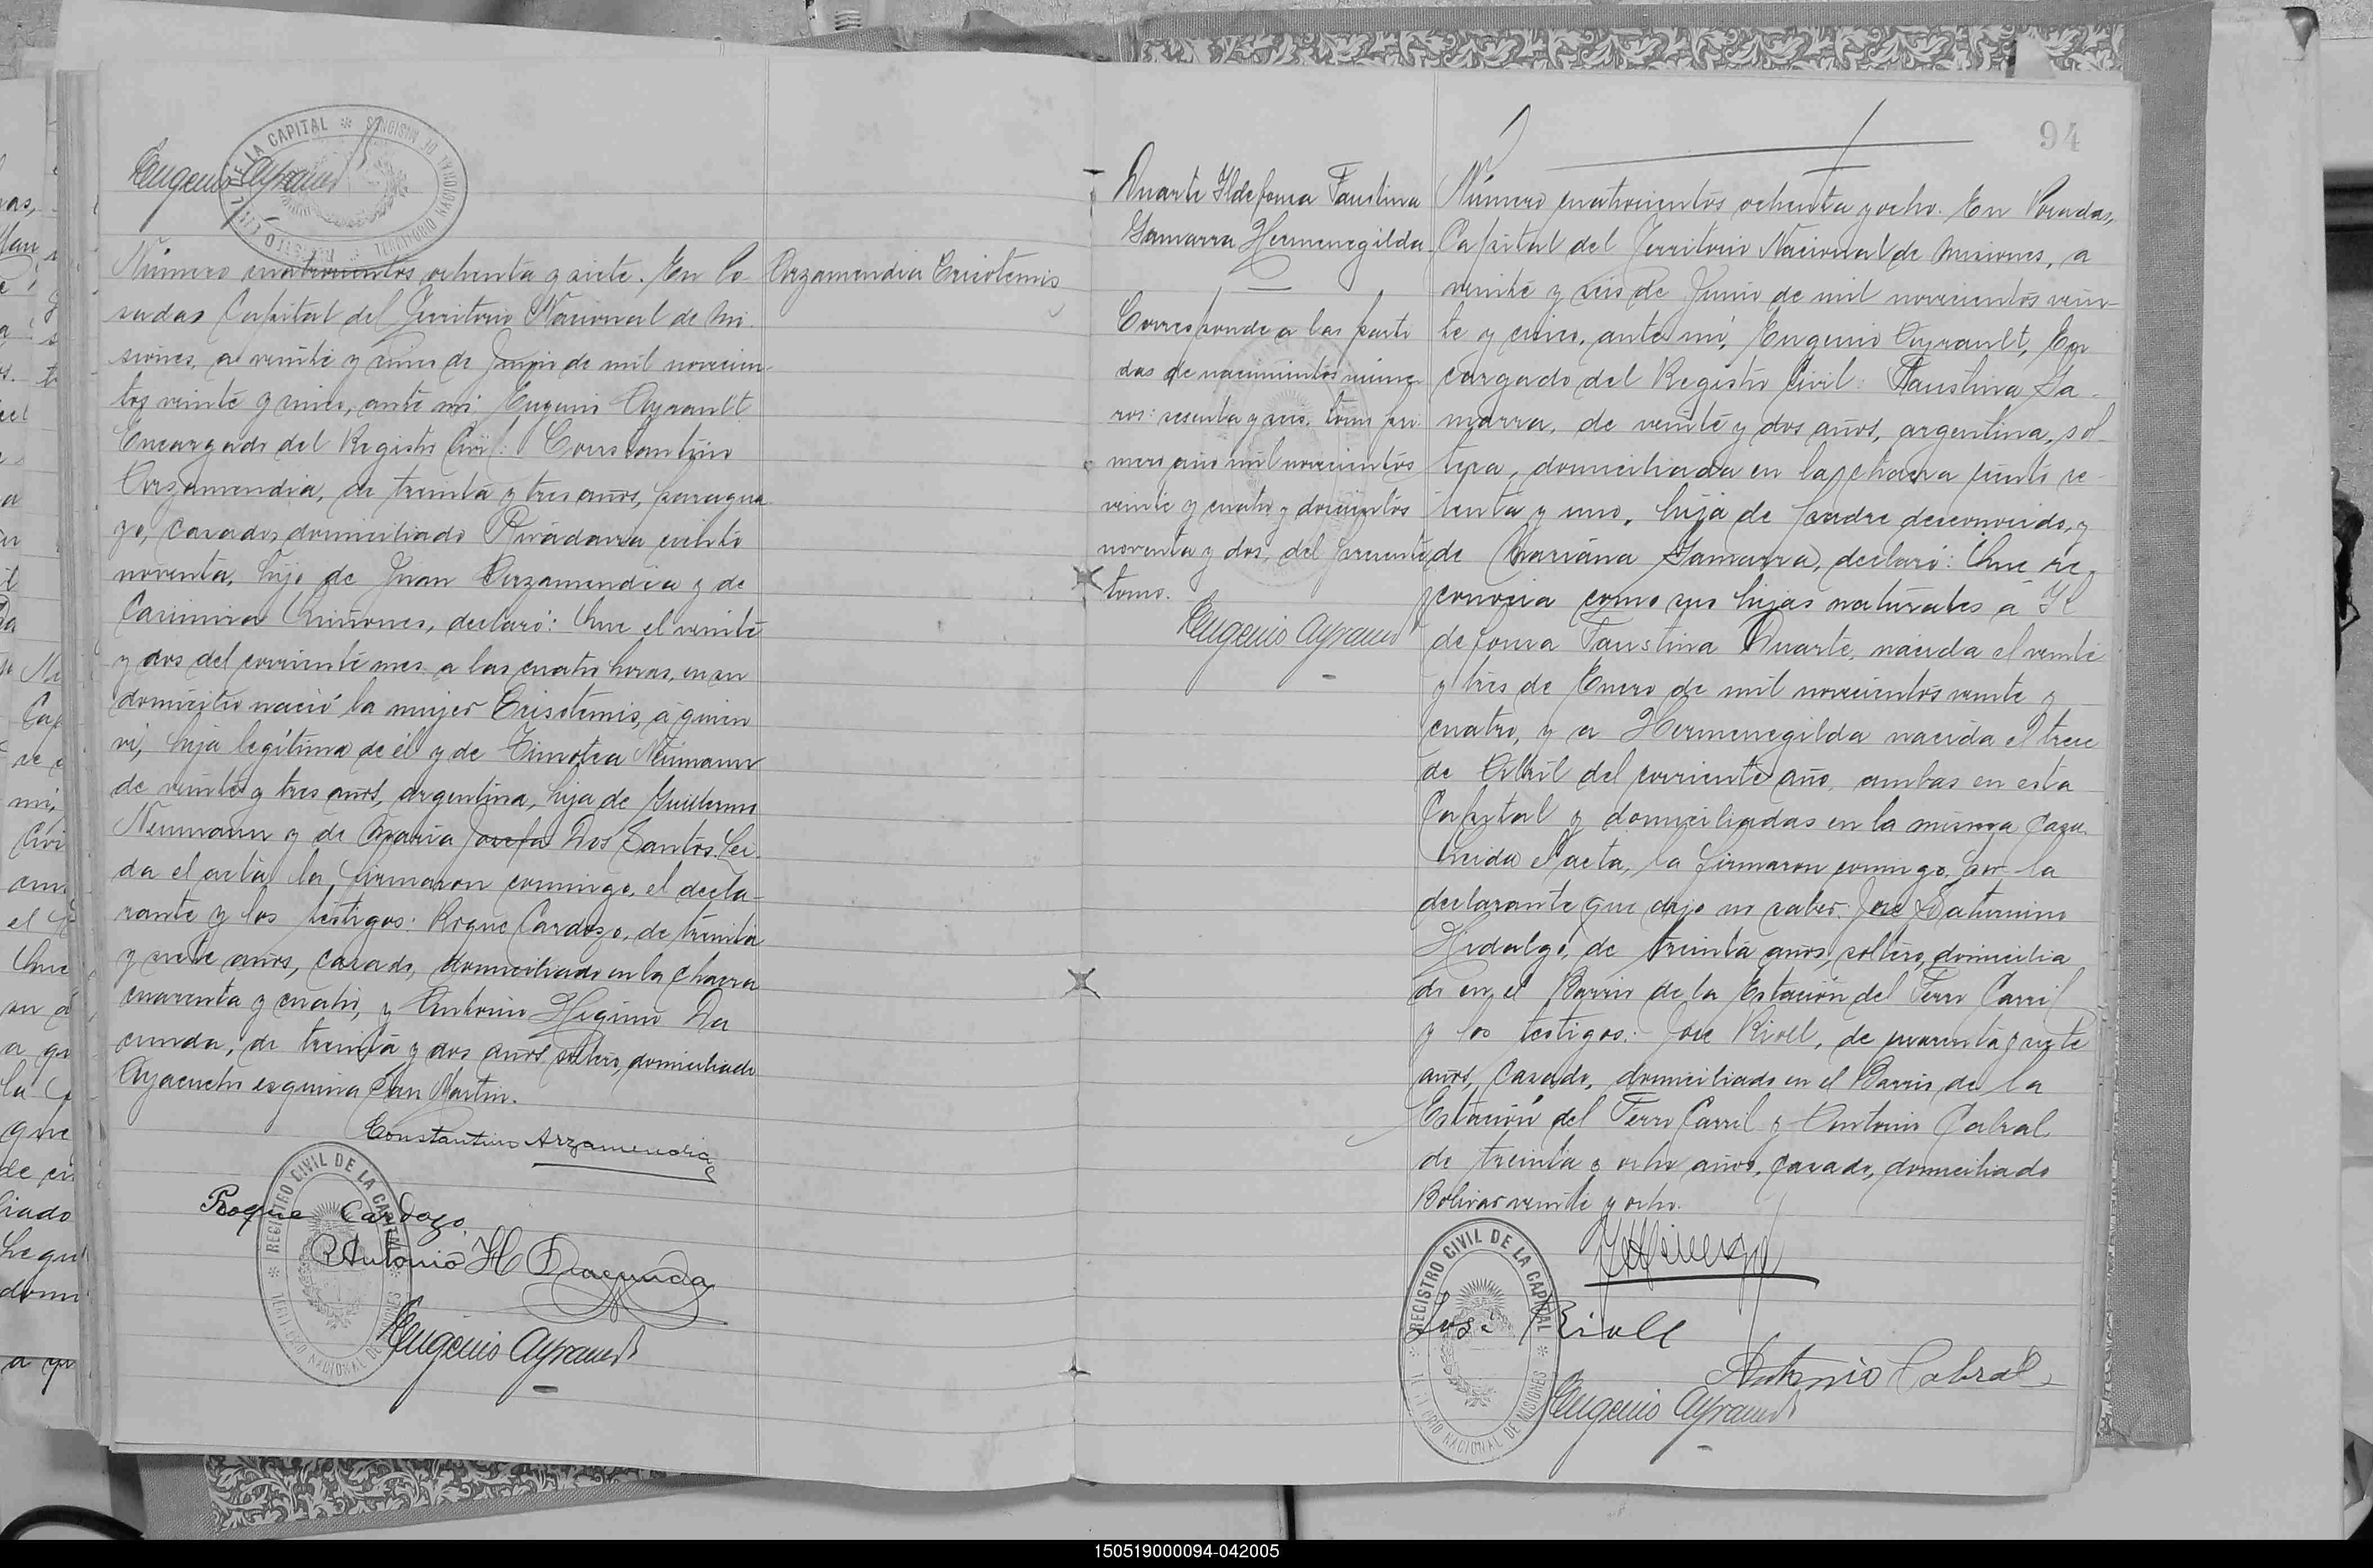 Eugenio Ayrault
REGISTRO CIVIL DE LA CAPITAL * TERRITORIO NACIONAL DE MISIONES *
Número cuatrocientos ochenta y siete. En Po-
sadas Capital del Territorio Nacional de Mi-
siones, a veinte y cinco de Junio de mil novecien-
tos veinte y cinco, ante mi: Eugenio Ayrault
Encargado del Registro Civil: Constantino
Arzamendia, de treinta y tres años, paragua-
yo, casado, domiciliado Rivadavia ciento
noventa, hijo de Juan Arzamendia y de
Casimira Quiñones, declaró: Que el veinte
y dos del corriente mes a las cuatro horas, en su
domicilio nació la mujer Crisotemis, á quien
vi, hija legítima de él y de Timotea Neumann
de veinte y tres años, argentina, hija de Guillermo
Neumann y de María Josefa Dos Santos. Lei-
da el acta la firmaron conmigo, el decla-
rante y los testigos: Roque Cardozo, de treinta
y siete años, casado, domiciliado en la chacra
cuarenta y cuatro, y Antonio Higinio Da
cunda, de treinta y dos años, soltero, domiciliado
Ayacucho esquina San Martin.
Constantino Arzamendia
Roque Cardozo
Antonio H Dacunda
REGISTRO CIVIL DE LA CAPITAL * TERRITORIO NACIONAL DE MISIONES *
Eugenio Ayrault
Arzamendia Crisotemis
94
Duarte Ildefonsa Faustina
Gamarra Hermenegilda
Corresponde a las parti
das de nacimientos núme-
ros: sesenta y seis, tomo pri-
mero año mil novecientos
veinte y cuatro y doscientos
noventa y dos, del presente
tomo.
Eugenio Ayrault
Número cuatrocientos ochenta y ocho. En Posadas,
Capital del Territorio Nacional de Misiones, a
veinte y seis de Junio de mil novecientos vein-
te y cinco, ante mi, Eugenio Ayrault, En
cargado del Registro Civil: Faustina Ga-
marra, de veinte y dos años, argentina, sol-
tera, domiciliada en la chacra ciento se-
tenta y uno, hija de padre desconocido, y
de Mariana Gamarra, declaró: Que re-
conocia como sus hijas naturales á Il
defonsa Faustina Duarte, nacida el veinte
y tres de Enero de mil novecientos veinte y
cuatro, y a Hermenegilda nacida el trece
de Abril del corriente año, ambas en esta
Capital y domiciliadas en la misma casa.
Leida el acta, la firmaron conmigo, por la
declarante que dijo no saber: José Saturnino
Hidalgo, de treinta años, soltero, domicilia
do en el Barrio de la Estación del Ferro Carril
y los testigos: José Rivell, de cuarenta y siete
años, casado, domiciliado en el Barrio de la
Estación del Ferro Carril y Antonio Cabral
de treinta y ocho años, casado, domiciliado
Bolivar veinte y ocho.
José Rivell
Antonio Cabral
REGISTRO CIVIL DE LA CAPITAL * TERRITORIO NACIONAL DE MISIONES *
Eugenio Ayrault
150519000094-042005